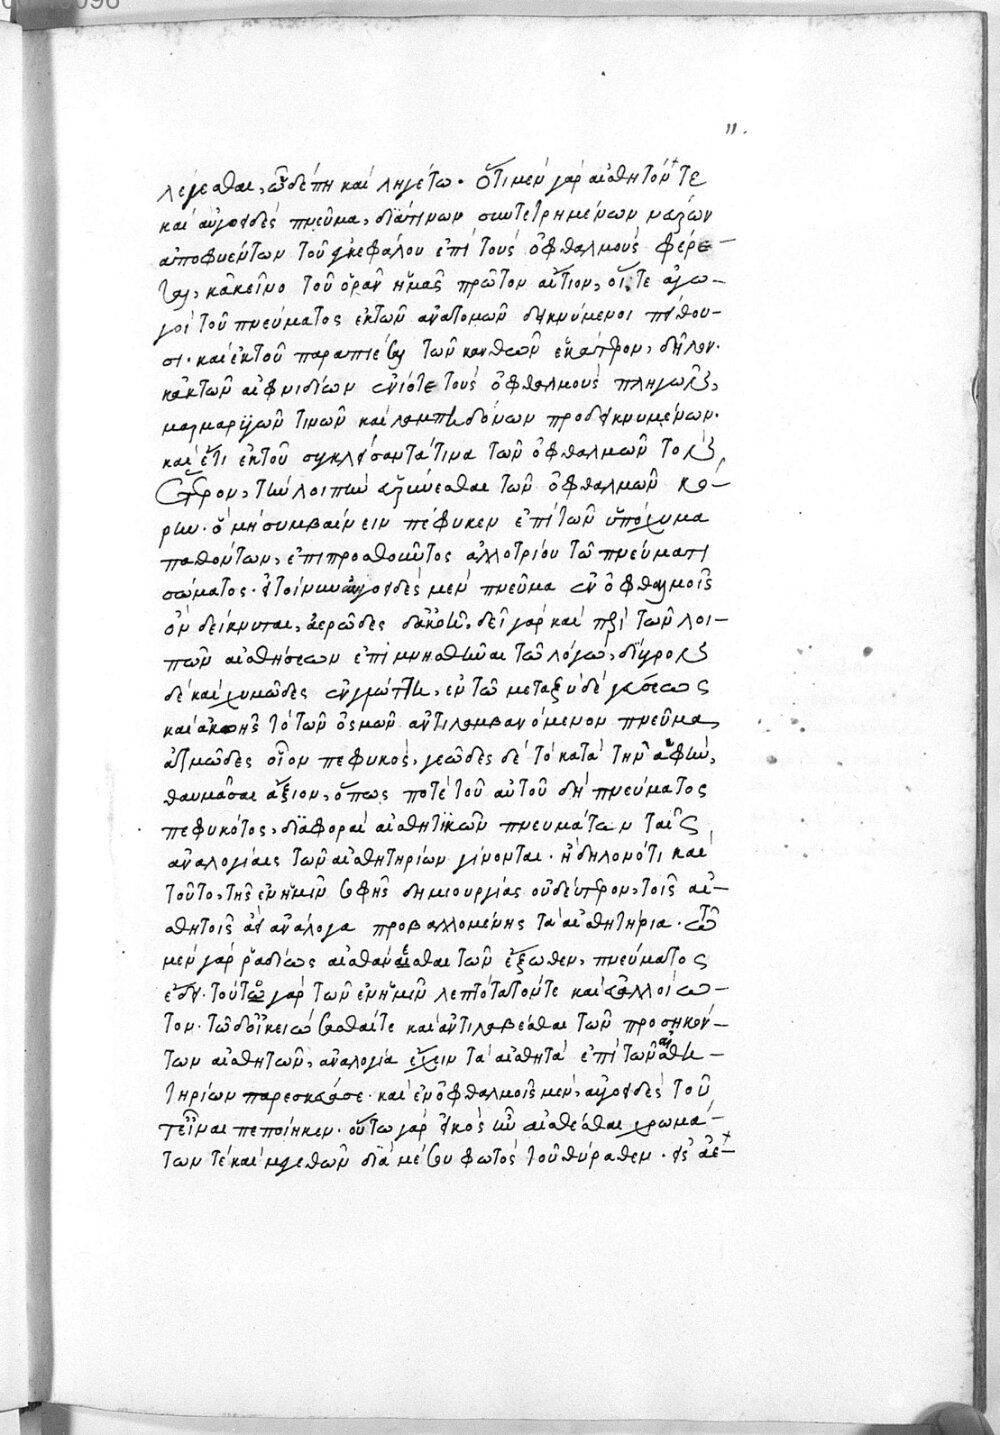 11.
λέγεσθαι, ὧδέ πη καὶ ληγέτω. ὅτι μὲν γὰρ αἰσθητόν τε
καὶ αὐγοειδὲς πνεῦμα, διά τινων συντετρημένων μαλῶν
ἀποφυέντων τοῦ ἐγκεφάλου ἐπὶ τοὺς ὀφθαλμοὺς φέρε-
ται, κἀκεῖνο τοῦ ὁρᾶν ἡμᾶς πρῶτον αἴτιον, οἵ τε
τοῦ πνεύματος ἐκ τῶν ἀνατομῶν δεικνύμενοι πείθου-
σι. καὶ ἐκ τοῦ παραπιέσαι τῶν κανθῶν ἑκάτερον, δῆλον.
κἀκ τῶν αἰφνιδίων ἐνίοτε τοὺς ὀφθαλμοὺς πληγῶν,
μαρμαρυγῶν τινῶν καὶ λαμπηδόνων προδεικνυμένων.
καὶ ἔτι ἐκ τοῦ συγκλείσαντά τινα τῶν ὀφθαλμῶν τὸν
ἕτερον, τὴν λοιπὴν εὐρύνεσθαι τῶν ὀφθαλμῶν κό-
ρην. ὃ μὴ συμβαίνειν πέφυκεν ἐπὶ τῶν ὑπόχυμα
παθόντων, ἐπιπροσθοῦντος ἀλλοτρίου τῷ πνεύματι
σώματος. εἰ τοίνυν αὐγοειδὲς μὲν πνεῦμα ἐν ὀφθαλμοῖς
ὂν δείκνυται, ἀερῶδες δ' ἀκοῇ. δεῖ γὰρ καὶ περὶ τῶν λοι-
πῶν αἰσθήσεων ἐπιμνησθῆναι τῷ λόγῳ, δίυγρον
δὲ καὶ χυμῶδες ἐν γλώττῃ, ἐν τῷ μεταξὺ δὲ γεύσεως
καὶ ἀκοῆς τὸ τῶν ὀσμῶν ἀντιλαμβανόμενον πνεῦμα,
ἀτμῶδες οἷον πεφυκός, γεῶδες δὲ τὸ κατὰ τὴν ἁφήν,
θαυμάσαι ἄξιον, ὅπως ποτὲ τοῦ αὐτοῦ δὴ πνεύματος
πεφυκότος, διάφοραι αἰσθητικῶν πνευμάτων ταῖς
ἀναλογίαις τῶν αἰσθητηρίων γίνονται. ἢ δηλονότι καὶ
τοῦτο, τῆς ἐν ἡμῖν σοφῆς δημιουργίας οὐ δεύτερον, τοῖς αἰ-
σθητοῖς ἀεὶ ἀνάλογα προβαλλομένης τὰ αἰσθητήρια. τῷ
μὲν γὰρ ῥᾳδίως αἰσθάνεσθαι τῶν ἔξωθεν, πνεύματος
ἔδει. τοῦτο γὰρ τῶν ἐν ἡμῖν λεπτότατόν τε καὶ εὐαλλοίω-
τον. τῷ δ' οἰκειοῦσθαί τε καὶ ἀντιλαβέσθαι τῶν προσηκόν-
των αἰσθητῶν, ἀναλογίαν ἔχειν τὰ αἰσθητὰ ἐπὶ τῶν αἰσθη-
τηρίων παρεσκεύασε. καὶ ἐν ὀφθαλμοῖς μὲν, αὐγοειδὲς τοῦ-
τ' εἶναι πεποίηκεν. οὕτω γὰρ εἰκὸς ἦν αἰσθέσθαι χρωμά-
των τὲ καὶ μεγεθῶν διὰ μέσου φωτὸς τοῦ θύραθεν. εἰς ἀε-